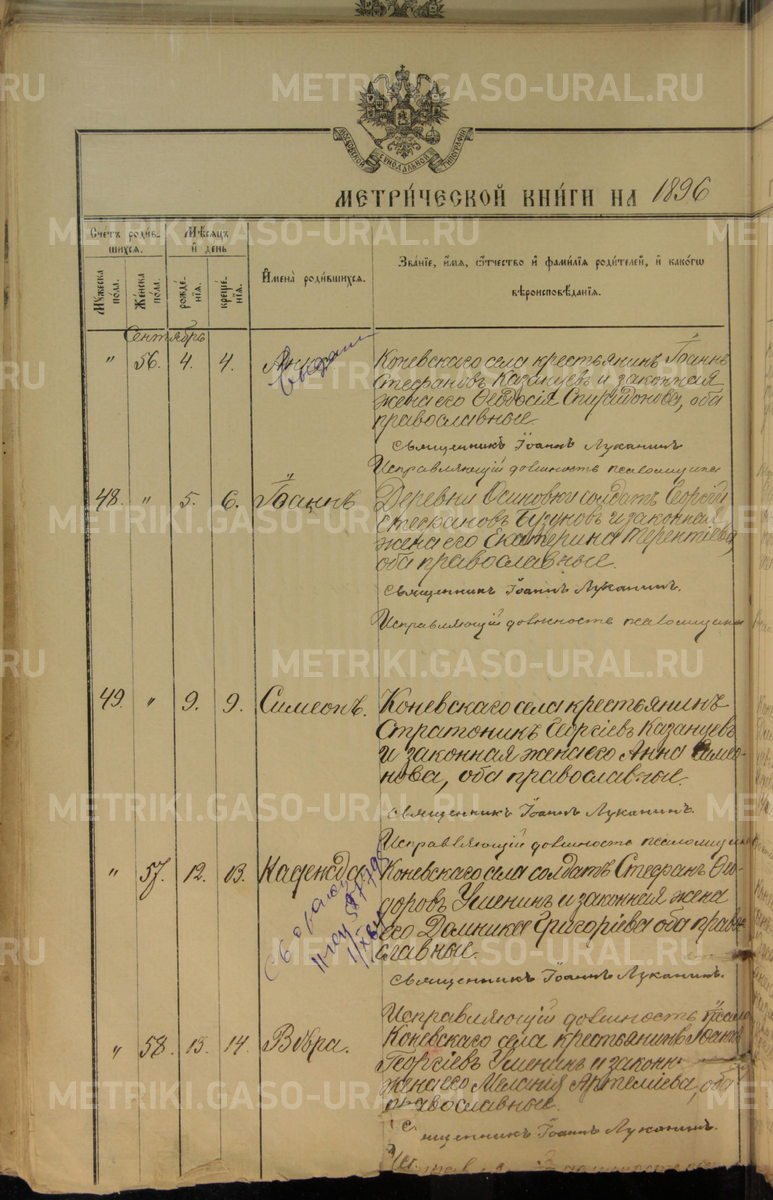 METRIKI.GASO-URAL.RU
МОСКОВСКОЙ СѴНОДАЛЬНОЙ ТИПОГРАФІИ
МЕТРИ́ЧЕСКОЙ КНИ́ГИ НА 1896
Счетъ роди́вшихся.
Мѣ́сяцъ и́ день
И́мена̀ роди́вшихся.
Зва́нїе, и́мя, ѻ҆́тчество и҆ фами́лїѧ роди́телей, и҆ како́гѡ вѣроисповѣ́данїѧ.
Мꙋ́жеска по́ла.
Же́нска по́ла.
рожде́нїѧ.
креще́нїѧ.
Сентябрь
" 56. 4. 4.
Коневскаго села крестьянинъ Іоаннъ
Стефановъ Казанцевъ и законная
жена его Ѳеодосія Спиридонова, оба
православные.
Священникъ Іоаннъ Луканинъ
Исправляющій должность псаломщика
48. " 5. 6. Іоаннъ
Деревни Осиновки солдатъ Георгій
Стефановъ и законная
жена его Екатерина Терентіева,
оба православные.
Священникъ Іоаннъ Луканинъ.
Исправляющій должность псаломщика
49. " 9. 9. Симеонъ.
Коневскаго села крестьянинъ
Стратоникъ Георгіевъ Казанцевъ
и законная жена его Анна Симео-
нова, оба православные.
Священникъ Іоаннъ Луканинъ.
Исправляющій должность псаломщика
" 57. 12. 13. Надежда
Коневскаго села солдатъ Стефанъ Ѳео-
доровъ Уменинъ и законная жена
его Домника Григоріева оба право-
славные.
Священникъ Іоаннъ Луканинъ.
Исправляющій должность псало
" 58. 13. 14. Вѣра.
Коневскаго села крестьянинъ Іоаннъ
Георгіевъ Уменинъ и законн
жена его Меланія Артеміева, оба
православные.
Священникъ Іоаннъ Луканинъ.